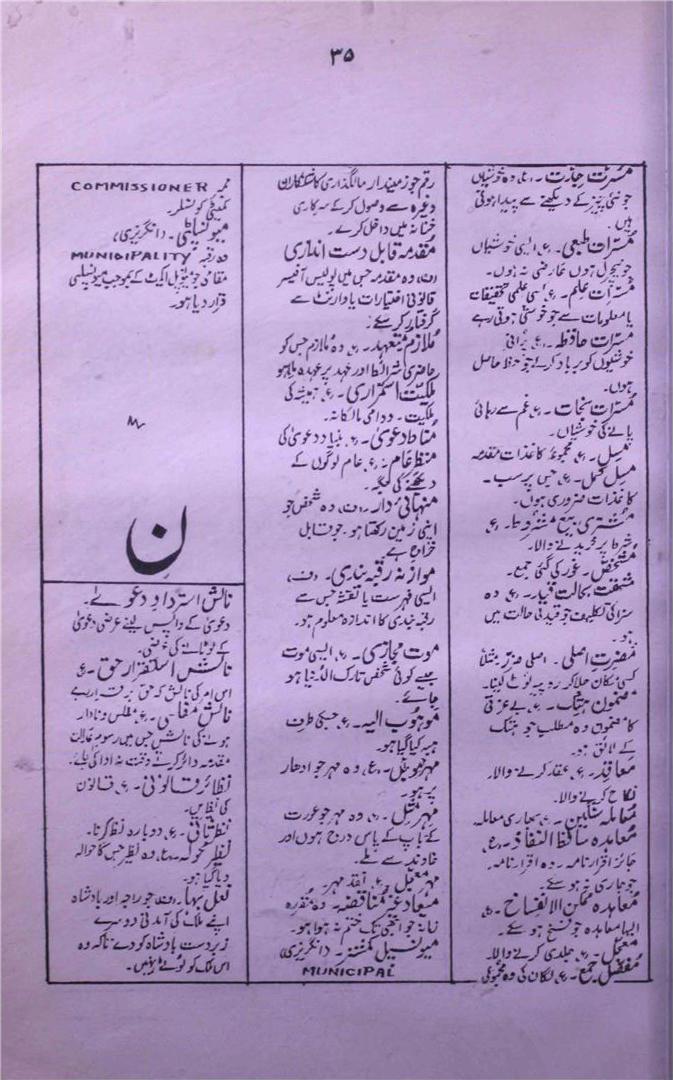 ۳۵
مسرّت جہارت۔ ع، وہ خوشیاں
جو نئی چیز کے دیکھنے سے پیدا ہوتی
ہیں۔
مسرّات طبعی۔ ع، ایسی خوشیاں
جو نیچرل ہوں عارضی نہ ہوں۔
مسرّات علم۔ ع، کسی علمی تحقیقات
یا معلومات سے جو خوشی ہوتی رہے
مسرّات حافظہ۔ ع، پرانی
خوشیوں کو یاد کر کے جو حظ حاصل
ہوں۔
مسرّات نجات۔ ع، غم سے رہائی
پانے کی خوشیاں۔
مسل۔ ع، مجموعہ کاغذات مقدمہ
مسل مکمل۔ ع، جس پر سب
کاغذات ضروری ہوں۔
مشتری بیع مشروط۔ ع،
شرط پر خریدنے والا۔
مشخص۔ غور کی گئی جمع۔
مشقت بحالت قید۔ ع، وہ
سزا کی تکلیف جو قیدی حالت میں
ہو۔
مضرت اصلی۔ اصلی ضرر مثلاً
کسی کا مکان جلا کر روپیہ لوٹ لینا۔
مضمون ہتک۔ ع، بے عزتی
کا مضمون وہ مطلب جو ہتک
کے لائق ہو۔
معاقد۔ ع، عقد کرنے والا۔
نکاح کرنے والا۔
معاملہ سنگین۔ ع، بھاری معاملہ
معاہدہ ساقط النفاذ۔ ع،
جائز اقرار نامہ۔ وہ اقرار نامہ۔
جو جاری نہ ہو سکے۔
معاہدہ ممکن الانفساخ۔ ع،
ایسا معاہدہ جو فسخ ہو سکے۔
معجل۔ ع، جلدی کرنے والا۔
مفصل جمع۔ ع، لگان کی وہ مجموعی
رقم جو زمیندار مالگذاری کاشتکاران
وغیرہ سے وصول کر کے سرکاری
خزانہ میں داخل کرے۔
مقدمہ قابل دست اندازی
ف، وہ مقدمہ جس میں پولیس آفیسر
قانونی اختیارات یا وارنٹ سے
گرفتار کر سکے۔
ملازم متعہد۔ ع، وہ ملازم جس کو
حاضری شرائط اور عہد پر عہدہ ملا ہو
ملکیت استمراری۔ ع، ہمیشہ کی
ملکیت۔ دوامی مالکانہ۔
مناط دعویٰ۔ ع، بنیاد دعویٰ کی
منظر عام۔ ع، عام لوگوں کے
دیکھنے کی جگہ۔
منہائی دار۔ ف، وہ شخص جو
ایسی زمین رکھتا ہو۔ جو قابل
خراج ہے۔
موازنہ رقبہ بندی۔ ف،
ایسی فہرست یا نقشہ جس سے
رقبہ بندی کا اندازہ معلوم ہو۔
موت مجازی۔ ع، ایسی موت
جیسے کوئی شخص تارک الدنیا ہو
جائے۔
موہوب الیہ۔ ع، جس کی طرف
ہبہ کیا گیا ہو۔
مہر موجل۔ ع، وہ مہر جو ادھار
پر ہو۔
مہر مثل۔ ع، وہ مہر جو عورت
کے باپ کے پاس درج ہوں اور
خاوند سے طے۔
مہر معجل۔ ع، نقد مہر۔
میعاد غیر منقضیہ۔ وہ مقررہ
زمانہ جو ابھی تک ختم نہ ہوا ہو۔
میونسپل کمشنر۔ (انگریزی)
MUNICIPAL
COMMISSIONER ممبر
کمیٹی کونسلر۔
میونسپلٹی۔ (انگریزی)
MUNICIPALITY وہ رقبہ
مقامی جو میونسپل ایکٹ کے بموجب میونسپلٹی
قرار دیا ہو۔
ن
نالش استرداد دعوے۔
دعویٰ کے واپس لینے عرضی دعویٰ
کے لوٹانے کی عرضی۔
نالش استقرار حق۔ ع
اس امر کی نالش کہ حق برقرار رہے
نالش مفلسی۔ ع، مفلس و نادار
ہونے کی نالش جس میں رسوم عدالت
مقدمہ دائر کرتے وقت نہ ادا کی جائے
نظائر قانونی۔ ع، قانون
کی نظیریں۔
نظر ثانی۔ ع، دوبارہ نظر کرنا۔
نظیر محولہ۔ ع، وہ نظیر جس کا حوالہ
دیا گیا ہو۔
نعل بہا۔ ف، جو راجہ اور بادشاہ
اپنے ملک کی آمدنی دوسرے
زبردست بادشاہ کو دے تاکہ وہ
اس ملک کو لوٹے نہیں۔